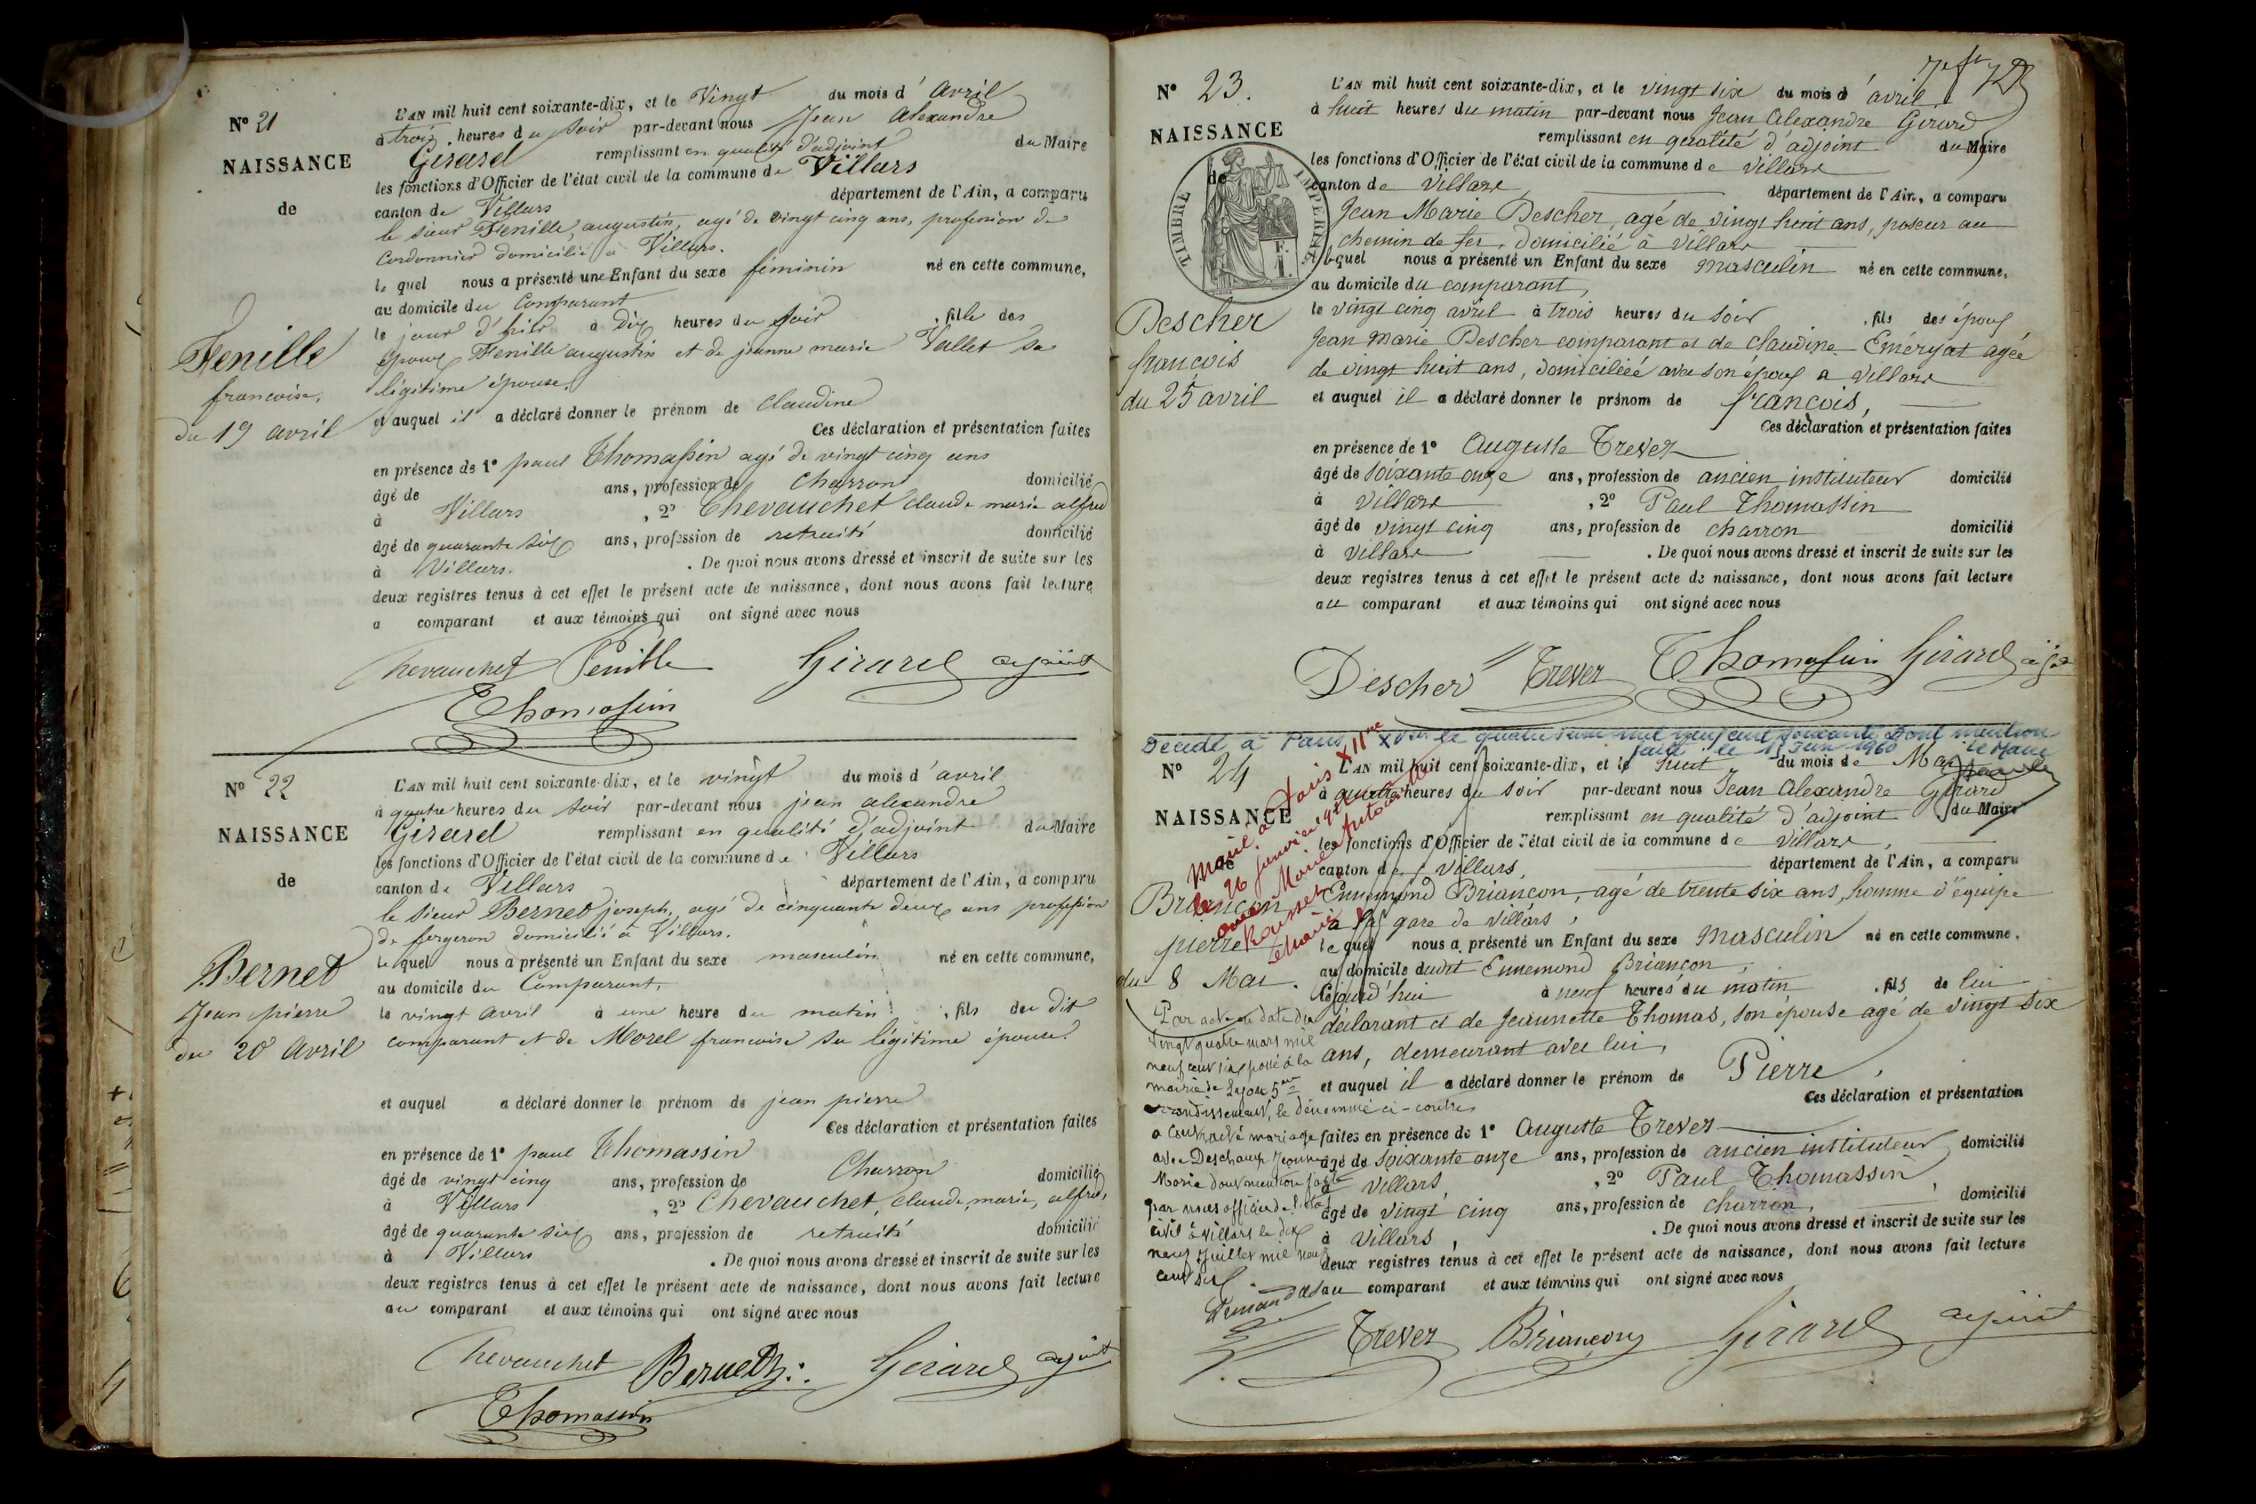 N° 21
NAISSANCE
de
Fenille
francoise,
du 19 avril
L'AN mil huit cent soixante-dix, et le Vingt du mois d'avril
à trois heures du soir par-devant nous Jean Alexandre
Girard remplissant en qualité d'adjoint du Maire
les fonctions d'Officier de l'état civil de la commune de Villars
canton de Villars département de l'Ain, a comparu
le sieur Fenille, augustin, agé de vingt cinq ans, profession de
Cordonnier domicilié à Villars.
le quel nous a présenté une Enfant du sexe féminin né en cette commune,
au domicile du Comparant
le jour d'hier à Dix heures du soir , fille des
époux Fenille augustin et de jeanne marie Vallet sa
légitime épouse,
et auquel il a déclaré donner le prénom de claudine
Ces déclaration et présentation faites
en présence de 1° paul Thomassin agé de vingt cinq ans
âgé de ans, profession de Charron domicilié
à Villars , 2° Chevauchet claude marie alfred
âgé de quarante six ans, profession de retraité domicilié
à Villars. . De quoi nous avons dressé et inscrit de suite sur les
deux registres tenus à cet effet le présent acte de naissance, dont nous avons fait lecture
a comparant et aux témoins qui ont signé avec nous
Chevauchet Fenille Girard adjoint
Thomassin
N° 22
NAISSANCE
de
Bernet
Jean pierre
du 20 avril
L'AN mil huit cent soixante-dix, et le vingt du mois d'avril
à quatre heures du soir par-devant nous jean alexandre
Girard remplissant en qualité d'adjoint du Maire
les fonctions d'Officier de l'état civil de la commune de Villars
canton de Villars département de l'Ain, a comparu
le sieur Bernet joseph, agé de cinquante deux ans profession
de forgeron domicilié à Villars.
le quel nous a présenté un Enfant du sexe masculin né en cette commune,
au domicile du Comparant,
le vingt avril à une heure du matin , fils du dit
comparant et de Morel francoise sa légitime épouse.
et auquel a déclaré donner le prénom de jean pierre
Ces déclaration et présentation faites
en présence de 1° paul Thomassin
âgé de vingt cinq ans, profession de Charron domicilié
à Villars , 2° Chevauchet, claude, marie, alfred,
âgé de quarante six ans, profession de retraité domicilié
à Villars . De quoi nous avons dressé et inscrit de suite sur les
deux registres tenus à cet effet le présent acte de naissance, dont nous avons fait lecture
au comparant et aux témoins qui ont signé avec nous
Chevauchet Bernet Girard adjoint
Thomassin
N° 23.
NAISSANCE
de
TIMBRE IMPERIAL
Descher
francois
du 25 avril
L'AN mil huit cent soixante-dix, et le vingt six du mois d'avril
à huit heures du matin par-devant nous Jean Alexandre Girard
remplissant en qualité d'adjoint du Maire
les fonctions d'Officier de l'état civil de la commune de Villars
canton de Villars département de l'Ain, a comparu
Jean Marie Descher, agé de vingt huit ans, poseur au
chemin de fer, domicilié à Villars
lequel nous a présenté un Enfant du sexe masculin né en cette commune,
au domicile du comparant,
le vingt cinq avril à trois heures du soir , fils des époux
Jean Marie Descher comparant et de claudine Eméryat agée
de vingt huit ans, domiciliée avec son époux a Villars
et auquel il a déclaré donner le prénom de francois,
Ces déclaration et présentation faites
en présence de 1° Auguste Trever
âgé de soixante onze ans, profession de ancien instituteur domicilié
à Villars , 2° Paul Thomassin
âgé de vingt cinq ans, profession de charron domicilié
à Villars . De quoi nous avons dressé et inscrit de suite sur les
deux registres tenus à cet effet le présent acte de naissance, dont nous avons fait lecture
au comparant et aux témoins qui ont signé avec nous
Descher Trever Thomassin Girard
Décédé à Paris le quatre juin mil neuf cent soixante Dont mention
faite le 1 Juin 1960 le Maire
N° 24
NAISSANCE
de
Briançon
pierre
du 8 Mai.
Marié à Paris
le 26 janvier
L'AN mil huit cent soixante-dix, et le huit du mois de Mai
à quatre heures du soir par-devant nous Jean Alexandre Girard
remplissant en qualité d'adjoint du Maire
les fonctions d'Officier de l'état civil de la commune de Villars,
canton de Villars, département de l'Ain, a comparu
Ennemond Briançon, agé de trente six ans, homme d'équipe
à la gare de Villars,
le quel nous a présenté un Enfant du sexe masculin né en cette commune,
au domicile dudit Ennemond Briançon,
aujourd'hui à neuf heures du matin , fils de lui
déclarant et de Jeannette Thomas, son épouse agé de vingt six
ans, demeurant avec lui,
et auquel il a déclaré donner le prénom de Pierre,
Ces déclaration et présentation
faites en présence de 1° Auguste Trever
âgé de soixante onze ans, profession de ancien instituteur domicilié
à Villars, , 2° Paul Thomassin
âgé de vingt cinq ans, profession de charron, domicilié
à Villars, . De quoi nous avons dressé et inscrit de suite sur les
deux registres tenus à cet effet le présent acte de naissance, dont nous avons fait lecture
au comparant et aux témoins qui ont signé avec nous
Par acte en date du
vingt quatre mars mil
neuf cent six passé à la
mairie de Lyon 5me
arrondissement, le dénommé ci-contre
a contracté mariage
avec Deschamp Jeanne
Marie dont mention faite
par nous officier de l'état
civil à Villars le dix
neuf Juillet mil neuf
cent six.
Trever Briançon Girard adjoint